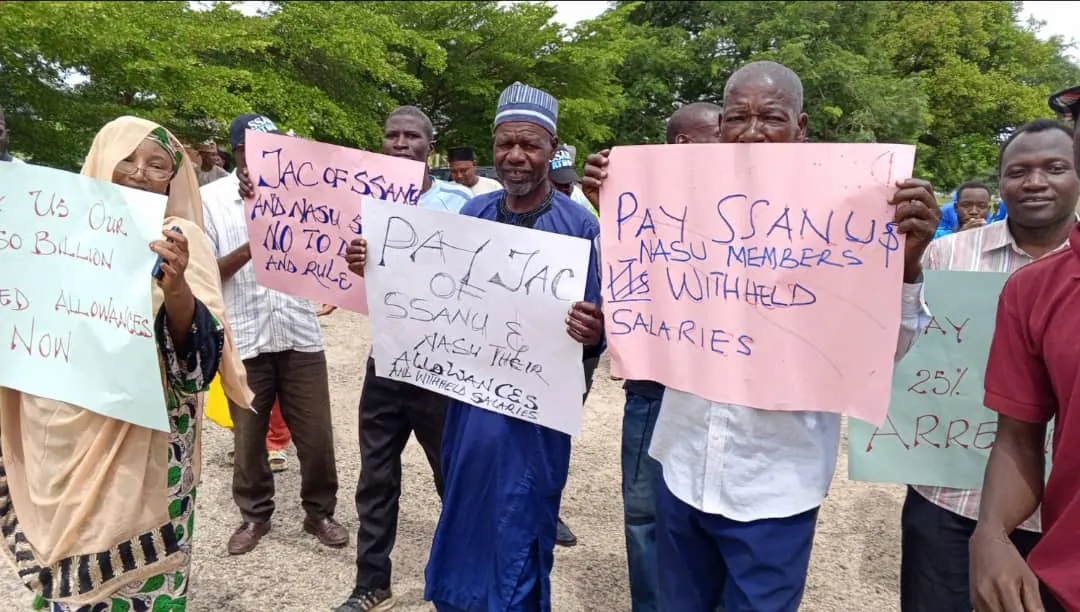 Us Our
50 Billion
ALLOWANCES
Now
JAC OF SSANU
AND NASU
NO TO
AND RULE
PAY JAC
OF
SSANU &
NASU THEIR
ALLOWANCES
AND WITHHELD SALARIES
PAY SSANU $
NASU MEMBERS
WITHHELD
SALARIES
PAY
25%
ARRE